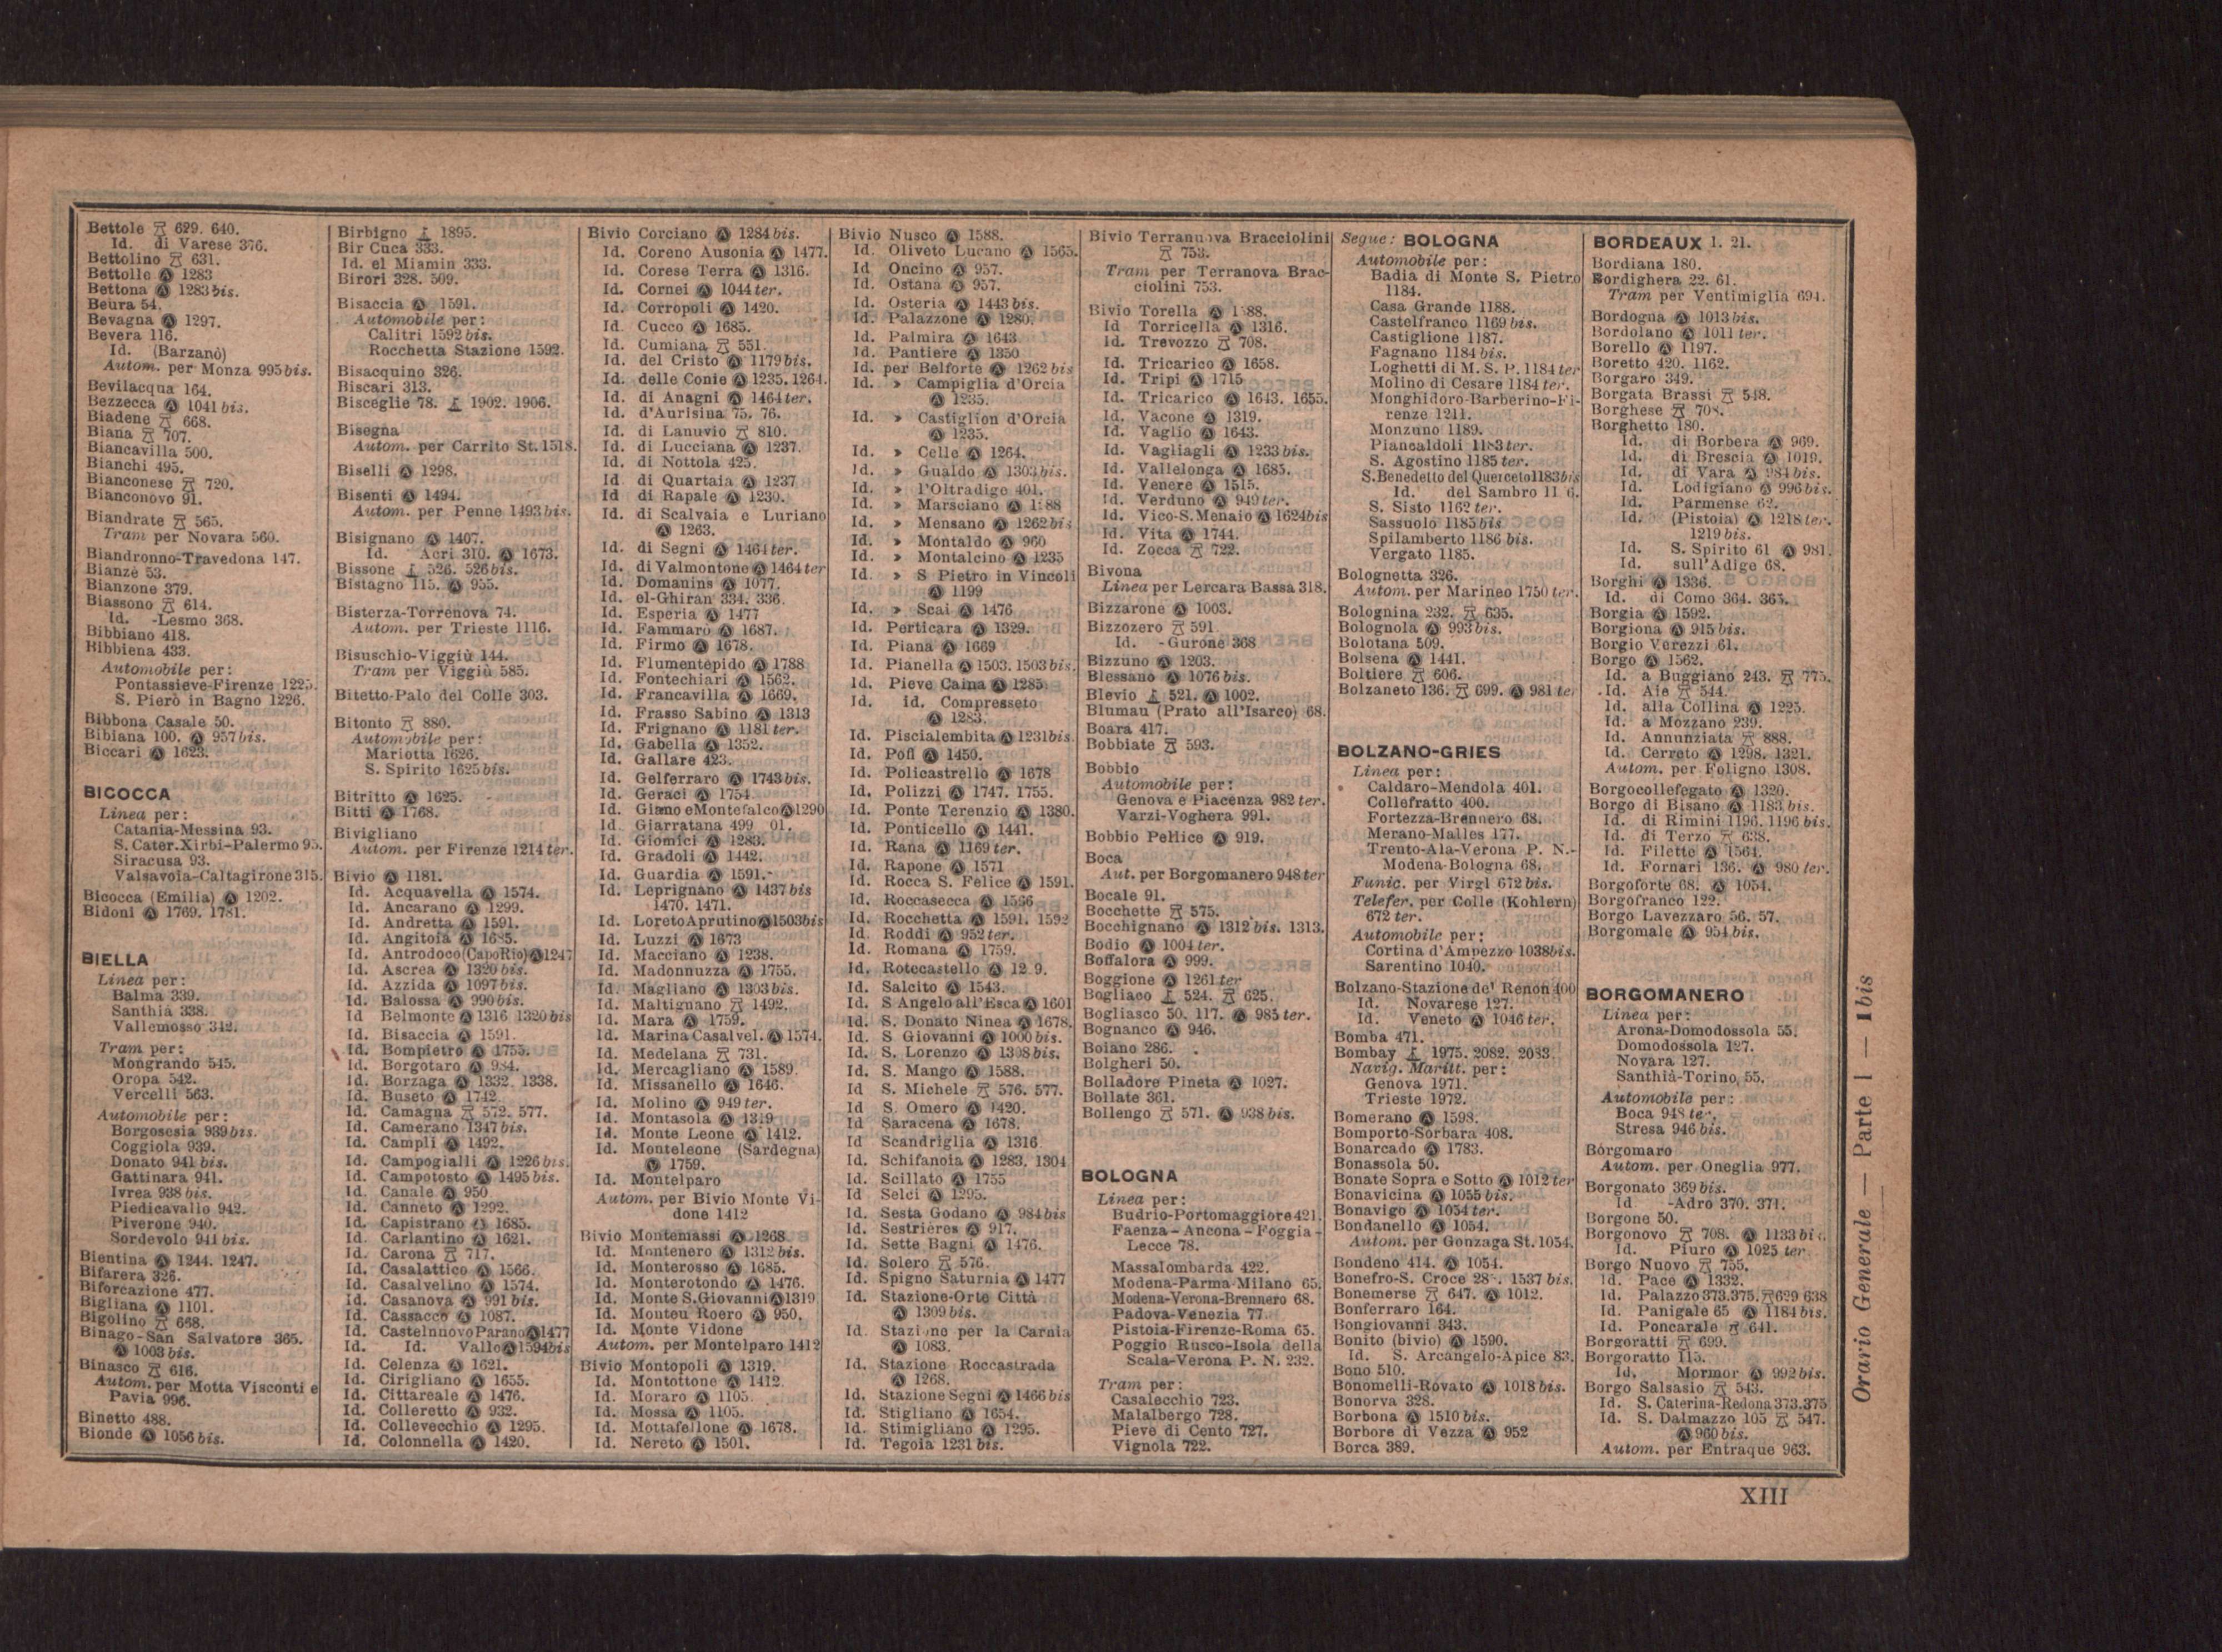 Bettole 629. 640.
Id. di Varese 376.
Bettolino 631.
Bettolle Ⓐ 1283
Bettona Ⓐ 1283 bis.
Beura 54.
Bevagna Ⓐ 1297.
Bevera 116.
Id. (Barzanò)
Autom. per Monza 995 bis.
Bevilacqua 164.
Bezzecca Ⓐ 1041 bis.
Biadene 668.
Biana 707.
Biancavilla 500.
Bianchi 495.
Bianconese 720.
Bianconovo 91.
Biandrate 565.
Tram per Novara 560.
Biandronno-Travedona 147.
Bianzè 53.
Bianzone 379.
Biassono 614.
Id. -Lesmo 368.
Bibbiano 418.
Bibbiena 433.
Automobile per:
Pontassieve-Firenze 1225.
S. Pierò in Bagno 1226.
Bibbona Casale 50.
Bibiana 100. Ⓐ 957 bis.
Biccari Ⓐ 1623.
BICOCCA
Linea per:
Catania-Messina 93.
S. Cater. Xirbi-Palermo 93.
Siracusa 93.
Valsavoia-Caltagirone 315.
Bicocca (Emilia) Ⓐ 1202.
Bidoni Ⓐ 1769. 1781.
BIELLA
Linea per:
Balma 339.
Santhià 338.
Vallemosso 342.
Tram per:
Mongrando 545.
Oropa 542.
Vercelli 563.
Automobile per:
Borgosesia 939 bis.
Coggiola 939.
Donato 941 bis.
Gattinara 941.
Ivrea 938 bis.
Piedicavallo 942.
Piverone 940.
Sordevolo 941 bis.
Bientina Ⓐ 1244. 1247.
Bifarera 326.
Biforcazione 477.
Bigliana Ⓐ 1101.
Bigolino 668.
Binago-San Salvatore 365.
Ⓐ 1003 bis.
Binasco 616.
Autom. per Motta Visconti e
Pavia 996.
Binetto 488.
Bionde Ⓐ 1056 bis.
Birbigno 1895.
Bir Cuca 333.
Id. el Miamin 333.
Birori 328. 509.
Bisaccia Ⓐ 1591.
Automobile per:
Calitri 1592 bis.
Rocchetta Stazione 1592.
Bisacquino 326.
Biscari 313.
Bisceglie 78. 1902. 1906.
Bisegna
Autom. per Carrito St. 1518.
Biselli Ⓐ 1298.
Bisenti Ⓐ 1494.
Autom. per Penne 1493 bis.
Bisignano Ⓐ 1407.
Id. Acri 310. Ⓐ 1673.
Bissone 526. 526 bis.
Bistagno 115. Ⓐ 955.
Bisterza-Torrenova 74.
Autom. per Trieste 1116.
Bisuschio-Viggiù 144.
Tram per Viggiù 585.
Bitetto-Palo del Colle 303.
Bitonto 880.
Automobile per:
Mariotta 1626.
S. Spirito 1625 bis.
Bitritto Ⓐ 1625.
Bitti Ⓐ 1768.
Bivigliano
Autom. per Firenze 1214 ter.
Bivio Ⓐ 1181.
Id. Acquavella Ⓐ 1574.
Id. Ancarano Ⓐ 1299.
Id. Andretta Ⓐ 1591.
Id. Angitola Ⓐ 1685.
Id. Antrodoco (Capo Rio) Ⓐ 1247
Id. Ascrea Ⓐ 1320 bis.
Id. Azzida Ⓐ 1097 bis.
Id. Balossa Ⓐ 990 bis.
Id Belmonte Ⓐ 1316 1320 bis
Id. Bisaccia Ⓐ 1591.
Id. Bompietro Ⓐ 1755.
Id. Borgotaro Ⓐ 984.
Id. Borzaga Ⓐ 1332 1338.
Id. Buseto Ⓐ 1742.
Id. Camagna 572. 577.
Id. Camerano 1347 bis.
Id. Campli Ⓐ 1492.
Id. Campogialli Ⓐ 1226 bis.
Id. Campotosto Ⓐ 1495 bis.
Id. Canale Ⓐ 950
Id. Canneto Ⓐ 1292.
Id. Capistrano Ⓐ 1685.
Id. Carlantino Ⓐ 1621.
Id. Carona 717.
Id. Casalattico Ⓐ 1566.
Id. Casalvelino Ⓐ 1574.
Id. Casanova Ⓐ 991 bis.
Id. Cassacco Ⓐ 1087.
Id. Castelnuovo Parano Ⓐ 1477
Id. Id. Vallo Ⓐ 1594 bis
Id. Celenza Ⓐ 1621.
Id. Cirigliano Ⓐ 1655.
Id. Cittareale Ⓐ 1476.
Id. Colleretto Ⓐ 932.
Id. Collevecchio Ⓐ 1295.
Id. Colonnella Ⓐ 1420.
Bivio Corciano Ⓐ 1284 bis.
Id. Coreno Ausonia Ⓐ 1477.
Id. Corese Terra Ⓐ 1316.
Id. Cornei Ⓐ 1044 ter.
Id. Corropoli Ⓐ 1420.
Id. Cucco Ⓐ 1685.
Id. Cumiana 551.
Id. del Cristo Ⓐ 1179 bis.
Id. delle Conie Ⓐ 1235. 1264.
Id. di Anagni Ⓐ 1464 ter.
Id. d'Aurisina 75. 76.
Id. di Lanuvio 810.
Id. di Lucciana Ⓐ 1237.
Id. di Nottola 425.
Id di Quartaia Ⓐ 1237
Id di Rapale Ⓐ 1230.
Id. di Scalvaia e Luriano
Ⓐ 1263.
Id. di Segni Ⓐ 1464 ter.
Id. di Valmontone Ⓐ 1464 ter
Id. Domanins Ⓐ 1077.
Id. el-Ghiran 334. 336.
Id. Esperia Ⓐ 1477
Id. Fammarò Ⓐ 1687.
Id. Firmo Ⓐ 1678.
Id. Flumentepido Ⓐ 1788
Id. Fontechiari Ⓐ 1562.
Id. Francavilla Ⓐ 1669.
Id. Frasso Sabino Ⓐ 1313
Id. Frignano Ⓐ 1181 ter.
Id. Gabella Ⓐ 1352.
Id. Gallare 423.
Id. Gelferraro Ⓐ 1743 bis.
Id. Geraci Ⓐ 1754
Id. Giano e Montefalco Ⓐ 1290
Id. Giarratana 499 01.
Id. Giomici Ⓐ 1283.
Id. Gradoli Ⓐ 1442.
Id. Guardia Ⓐ 1591.
Id. Leprignano Ⓐ 1437 bis
1470. 1471.
Id. Loreto Aprutino Ⓐ 1503 bis
Id. Luzzi Ⓐ 1673
Id. Macciano Ⓐ 1238.
Id. Madonnuzza Ⓐ 1755.
Id. Magliano Ⓐ 1303 bis.
Id. Maltignano 1492.
Id. Mara Ⓐ 1759.
Id. Marina Casalvel. Ⓐ 1574.
Id. Medelana 731.
Id. Mercagliano Ⓐ 1589.
Id. Missanello Ⓐ 1646.
Id. Molino Ⓐ 949 ter.
Id. Montasola Ⓐ 1319
Id. Monte Leone Ⓐ 1412.
Id. Monteleone (Sardegna)
Ⓐ 1759.
Id. Montelparo
Autom. per Bivio Monte Vi-
done 1412
Bivio Montemassi Ⓐ 1268
Id. Montenero Ⓐ 1312 bis.
Id. Monterosso Ⓐ 1685.
Id. Monterotondo Ⓐ 1476.
Id. Monte S. Giovanni Ⓐ 1319
Id. Monteu Roero Ⓐ 950.
Id. Monte Vidone
Autom. per Montelparo 1412
Bivio Montopoli Ⓐ 1319.
Id. Montottone Ⓐ 1412.
Id. Moraro Ⓐ 1105.
Id. Mossa Ⓐ 1105.
Id. Mottafellone Ⓐ 1678.
Id. Nereto Ⓐ 1501.
Bivio Nusco Ⓐ 1588.
Id. Oliveto Lucano Ⓐ 1565.
Id Oncino Ⓐ 957.
Id. Ostana Ⓐ 957.
Id. Osteria Ⓐ 1443 bis.
Id. Palazzone Ⓐ 1280.
Id. Palmira Ⓐ 1643
Id. Pantiere Ⓐ 1350
Id. per Belforte Ⓐ 1262 bis
Id. » Campiglia d'Orcia
Ⓐ 1235.
Id. » Castiglion d'Orcia
Ⓐ 1235.
Id. » Celle Ⓐ 1264.
Id. » Gualdo Ⓐ 1303 bis.
Id. » l'Oltradige 401.
Id. » Marsciano Ⓐ 1 88
Id. » Mensano Ⓐ 1262 bis
Id. » Montaldo Ⓐ 960
Id. » Montalcino Ⓐ 1235
Id. » S Pietro in Vincoli
Ⓐ 1199
Id. » Scai Ⓐ 1476
Id. Perticara Ⓐ 1329.
Id. Piana Ⓐ 1669
Id. Pianella Ⓐ 1503. 1503 bis.
Id. Pieve Caina Ⓐ 1285
Id. id. Compresseto
Ⓐ 1283.
Id. Piscialembita Ⓐ 1231 bis
Id. Pofi Ⓐ 1450.
Id. Policastrello Ⓐ 1678
Id. Polizzi Ⓐ 1747. 1755.
Id. Ponte Terenzio Ⓐ 1380.
Id. Ponticello Ⓐ 1441.
Id. Rana Ⓐ 1169 ter.
Id. Rapone Ⓐ 1571
Id. Rocca S. Felice Ⓐ 1591.
Id. Roccasecca Ⓐ 1566
Id. Rocchetta Ⓐ 1591. 1592
Id. Roddi Ⓐ 952 ter.
Id. Romana Ⓐ 1759.
Id. Rotecastello Ⓐ 12 9.
Id. Salcito Ⓐ 1543.
Id. S Angelo all'Esca Ⓐ 1601
Id. S. Donato Ninea Ⓐ 1678.
Id. S Giovanni Ⓐ 1000 bis.
Id. S. Lorenzo Ⓐ 1308 bis.
Id. S. Mango Ⓐ 1588.
Id S. Michele 576. 577.
Id S. Omero Ⓐ 1420.
Id Saracena Ⓐ 1678.
Id Scandriglia Ⓐ 1316
Id. Schifanoia Ⓐ 1283. 1304
Id. Scillato Ⓐ 1755
Id Selci Ⓐ 1295.
Id. Sesta Godano Ⓐ 984 bis
Id. Sestrières Ⓐ 917.
Id. Sette Bagni Ⓐ 1476.
Id. Solero 576.
Id. Spigno Saturnia Ⓐ 1477
Id. Stazione-Orte Città
Ⓐ 1309 bis.
Id. Stazione per la Carnia
Ⓐ 1083.
Id. Stazione Roccastrada
Ⓐ 1268.
Id. Stazione Segni Ⓐ 1466 bis
Id. Stigliano Ⓐ 1654.
Id. Stimigliano Ⓐ 1295.
Id. Tegoia 1231 bis.
Bivio Terranuova Bracciolini
753.
Tram per Terranova Brac-
ciolini 753.
Bivio Torella Ⓐ 1 88.
Id Torricella Ⓐ 1316.
Id. Trevozzo 708.
Id. Tricarico Ⓐ 1658.
Id. Tripi Ⓐ 1715
Id. Tricarico Ⓐ 1643. 1655.
Id. Vacone Ⓐ 1319.
Id. Vaglio Ⓐ 1643.
Id. Vagliagli Ⓐ 1233 bis.
Id. Vallelonga Ⓐ 1685.
Id. Venere Ⓐ 1515.
Id. Verduno Ⓐ 949 ter.
Id. Vico-S. Menaio Ⓐ 1624 bis
Id. Vita Ⓐ 1744.
Id. Zocca 722.
Bivona
Linea per Lercara Bassa 318.
Bizzarone Ⓐ 1003.
Bizzozero 591
Id. -Gurone 368
Bizzuno Ⓐ 1203.
Blessano Ⓐ 1076 bis.
Blevio 521. Ⓐ 1002.
Blumau (Prato all'Isarco) 68.
Boara 417.
Bobbiate 593.
Bobbio
Automobile per:
Genova e Piacenza 982 ter.
Varzi-Voghera 991.
Bobbio Pellice Ⓐ 919.
Boca
Aut. per Borgomanero 948 ter
Bocale 91.
Bocchette 575.
Bocchignano Ⓐ 1312 bis. 1313.
Bodio Ⓐ 1004 ter.
Boffalora Ⓐ 999.
Boggione Ⓐ 1261 ter
Bogliaco 524. 625.
Bogliasco 50. 117. Ⓐ 985 ter.
Bognanco Ⓐ 946.
Boiano 286.
Bolgheri 50.
Bolladore Pineta Ⓐ 1027.
Bollate 361.
Bollengo 571. Ⓐ 938 bis.
BOLOGNA
Linea per:
Budrio-Portomaggiore 421.
Faenza-Ancona-Foggia-
Lecce 78.
Massalombarda 422.
Modena-Parma-Milano 65.
Modena-Verona-Brennero 68.
Padova-Venezia 77
Pistoia-Firenze-Roma 65.
Poggio Rusco-Isola della
Scala-Verona P. N. 232.
Tram per:
Casalecchio 723.
Malalbergo 728.
Pieve di Cento 727.
Vignola 722.
Segue: BOLOGNA
Automobile per:
Badia di Monte S. Pietro
1184.
Casa Grande 1188.
Castelfranco 1169 bis.
Castiglione 1187.
Fagnano 1184 bis.
Loghetti di M. S. P. 1184 ter
Molino di Cesare 1184 ter.
Monghidoro-Barberino-Fi-
renze 1211.
Monzuno 1189.
Piancaldoli 1183 ter.
S. Agostino 1185 ter.
S. Benedetto del Querceto 1183 bis
Id. del Sambro 11 6.
S. Sisto 1162 ter.
Sassuolo 1185 bis
Spilamberto 1186 bis.
Vergato 1185.
Bolognetta 326.
Autom. per Marineo 1750 ter.
Bolognina 232. 635.
Bolognola Ⓐ 993 bis.
Bolotana 509.
Bolsena Ⓐ 1441.
Boltiere 606.
Bolzaneto 136. 699. Ⓐ 981 te
BOLZANO-GRIES
Linea per:
Caldaro-Mendola 401.
Collefratto 400.
Fortezza-Brennero 68.
Merano-Malles 177.
Trento-Ala-Verona P. N.-
Modena-Bologna 68.
Funic. per Virgl 672 bis.
Telefer. per Colle (Kohlern)
672 ter.
Automobile per:
Cortina d'Ampezzo 1038 bis.
Sarentino 1040.
Bolzano-Stazione del Renon 400
Id. Novarese 127.
Id. Veneto Ⓐ 1046 ter.
Bomba 471.
Bombay 1975. 2082. 2083.
Navig. Maritt. per:
Genova 1971.
Trieste 1972.
Bomerano Ⓐ 1598.
Bomporto-Sorbara 408.
Bonarcado Ⓐ 1783.
Bonassola 50.
Bonate Sopra e Sotto Ⓐ 1012 ter
Bonavicina Ⓐ 1055 bis.
Bonavigo Ⓐ 1054 ter.
Bondanello Ⓐ 1054.
Autom. per Gonzaga St. 1054.
Bondeno 414. Ⓐ 1054.
Bonefro-S. Croce 28 . 1537 bis.
Bonemerse 647. Ⓐ 1012.
Bonferraro 164.
Bongiovanni 343.
Bonito (bivio) Ⓐ 1590.
Id. S. Arcangelo-Apice 83.
Bono 510.
Bonomelli-Rovato Ⓐ 1018 bis.
Bonorva 328.
Borbona Ⓐ 1510 bis.
Borbore di Vezza Ⓐ 952
Borca 389.
BORDEAUX I. 21.
Bordiana 180.
Bordighera 22. 61.
Tram per Ventimiglia 694.
Bordogna Ⓐ 1013 bis.
Bordolano Ⓐ 1011 ter.
Borello Ⓐ 1197.
Boretto 420. 1162.
Borgaro 349.
Borgata Brassi 548.
Borghese 708.
Borghetto 180.
Id. di Borbera Ⓐ 969.
Id. di Brescia Ⓐ 1019.
Id. di Vara Ⓐ 984 bis.
Id. Lodigiano Ⓐ 996 bis.
Id. Parmense 62.
Id. (Pistoia) Ⓐ 1218 ter.
1219 bis.
Id. S. Spirito 61 Ⓐ 981.
Id. sull'Adige 68.
Borghi Ⓐ 1336.
Id. di Como 364. 365.
Borgia Ⓐ 1592.
Borgiona Ⓐ 915 bis.
Borgio Verezzi 61.
Borgo Ⓐ 1562.
Id. a Buggiano 243. 775.
Id. Aie 544.
Id. alla Collina Ⓐ 1225.
Id. a Mozzano 239.
Id. Annunziata 888.
Id. Cerreto Ⓐ 1298. 1321.
Autom. per Foligno 1308.
Borgocollefegato Ⓐ 1320.
Borgo di Bisano Ⓐ 1183 bis.
Id. di Rimini 1196. 1196 bis.
Id. di Terzo 638.
Id. Filette Ⓐ 1564.
Id. Fornari 136. Ⓐ 980 ter.
Borgoforte 68. Ⓐ 1054.
Borgofranco 122.
Borgo Lavezzaro 56. 57.
Borgomale Ⓐ 954 bis.
BORGOMANERO
Linea per:
Arona-Domodossola 55.
Domodossola 127.
Novara 127.
Santhià-Torino, 55.
Automobile per:
Boca 948 ter.
Stresa 946 bis.
Borgomaro
Autom. per Oneglia 977.
Borgonato 369 bis.
Id -Adro 370. 371.
Borgone 50.
Borgonovo 708. Ⓐ 1133 bis.
Id. Piuro Ⓐ 1025 ter
Borgo Nuovo 755.
Id. Pace Ⓐ 1332.
Id. Palazzo 373. 375. 629 638
Id. Panigale 65 Ⓐ 1184 bis.
Id. Poncarale 641.
Borgoratti 699.
Borgoratto 115.
Id. Mormor Ⓐ 992 bis.
Borgo Salsasio 543.
Id. S. Caterina-Redona 373. 375
Id. S. Dalmazzo 105 547.
Ⓐ 960 bis.
Autom. per Entraque 963.
Orario Generale — Parte I — 1 bis
XIII